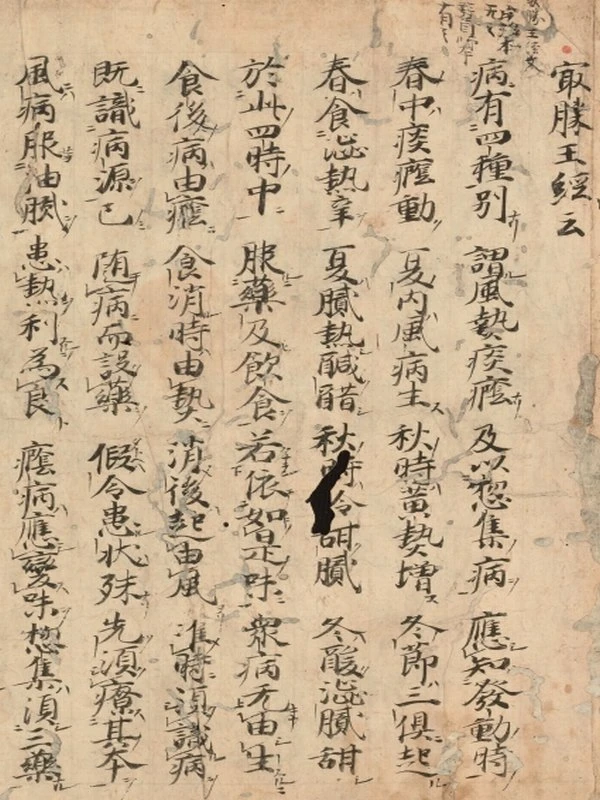 㝡勝王經云
病有四種別 謂風熱痰癊 及以惣集病 應知發動時
春中痰癊動 夏內風病生 秋時黃熱增 冬節三俱起
春食澁熱辛 夏膩熱醎醋 秋時冷甜膩 冬酸澁膩甜
於此四時中 服藥及飲食 若依如是味 衆病无由生
食後病由癊 食消時由熱 消後起由風 准時須識病
既識病源已 隨病而設藥 假令患狀殊 先須療其本
風病服油膩 患熱利為良 癊病應變味 惣集須三藥